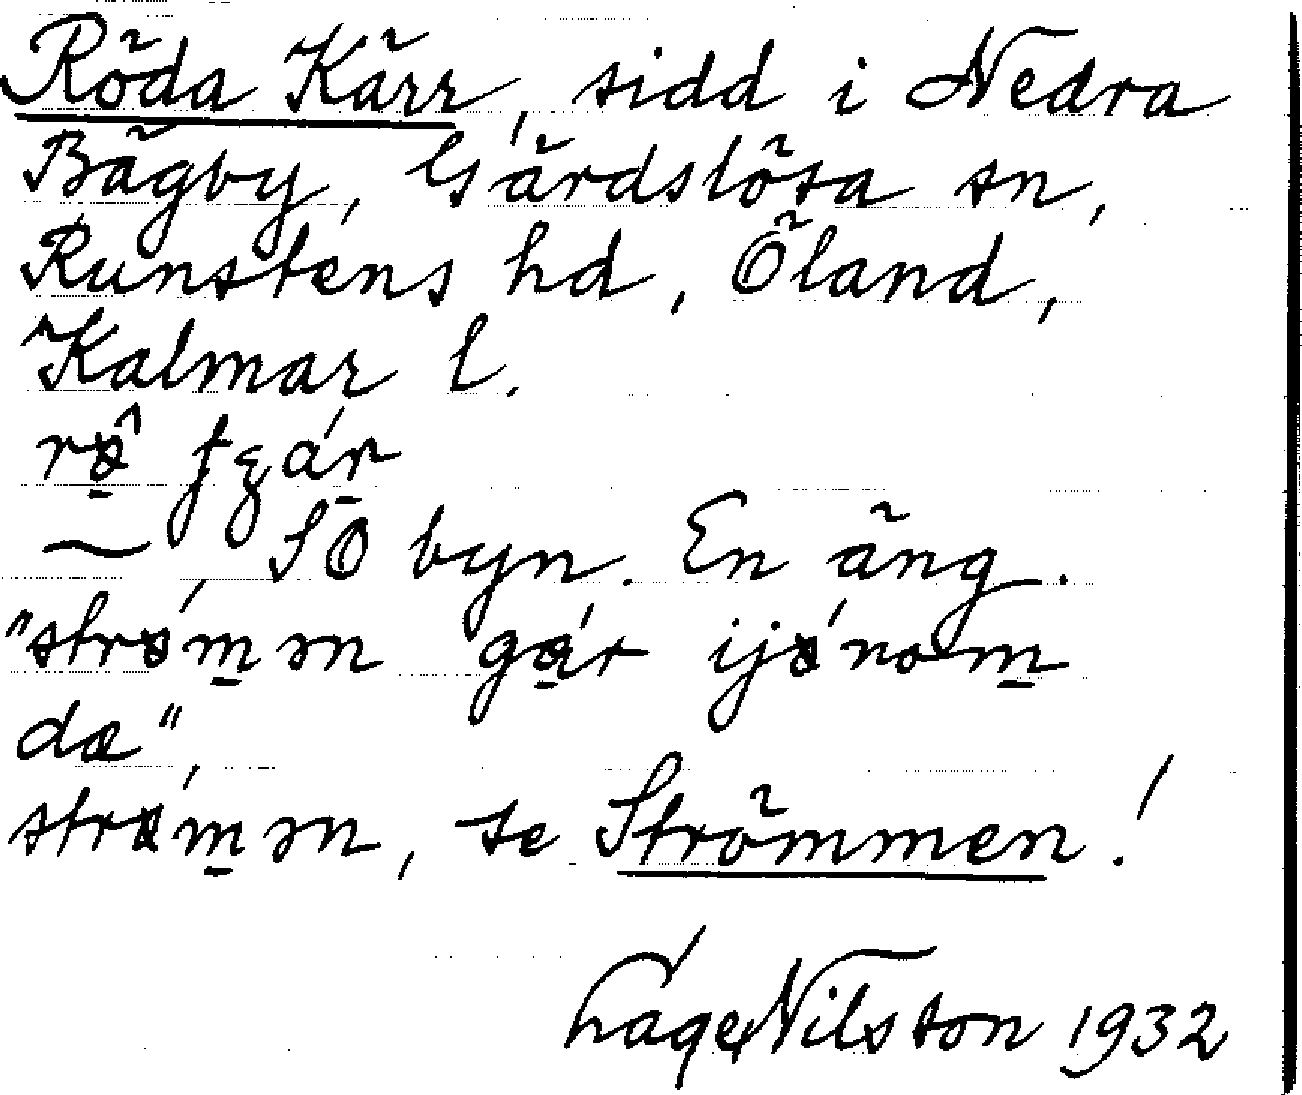 Röda Kärr, sidd i Nedra
Bägby, Gärdslösa sn,
Runstens hd, Öland,
Kalmar l.
SO byn. En äng.
"strömən går ijönom
dæ",
strömən, se Strömmen!
Nilsson 1932